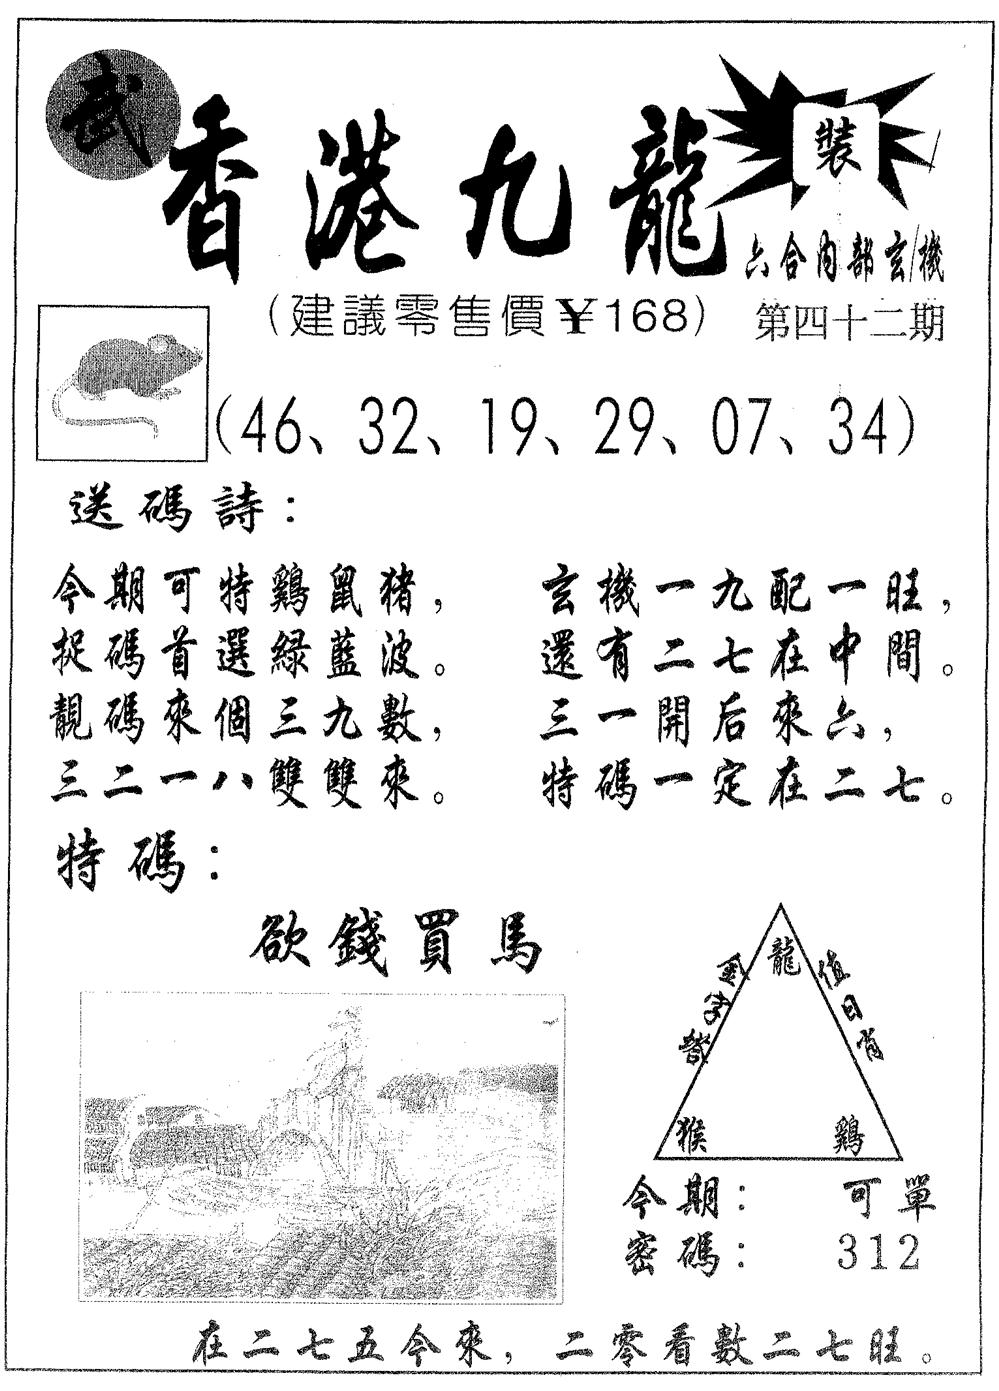 武
香港九龍
裝
六合内部玄機
(建議零售價¥168)
第四十二期
(46、32、19、29、07、34)
送碼詩:
今期可特鷄鼠猪,
捉碼首選緑藍波。
靚碼來個三九數,
三二一八雙雙來。
玄機一九配一旺,
還有二七在中間。
三一開后來六,
特碼一定在二七。
特碼:
欲錢買馬
龍
值日肖
猴
鷄
今期: 可單
密碼: 312
在二七五今來, 二零看數二七旺。